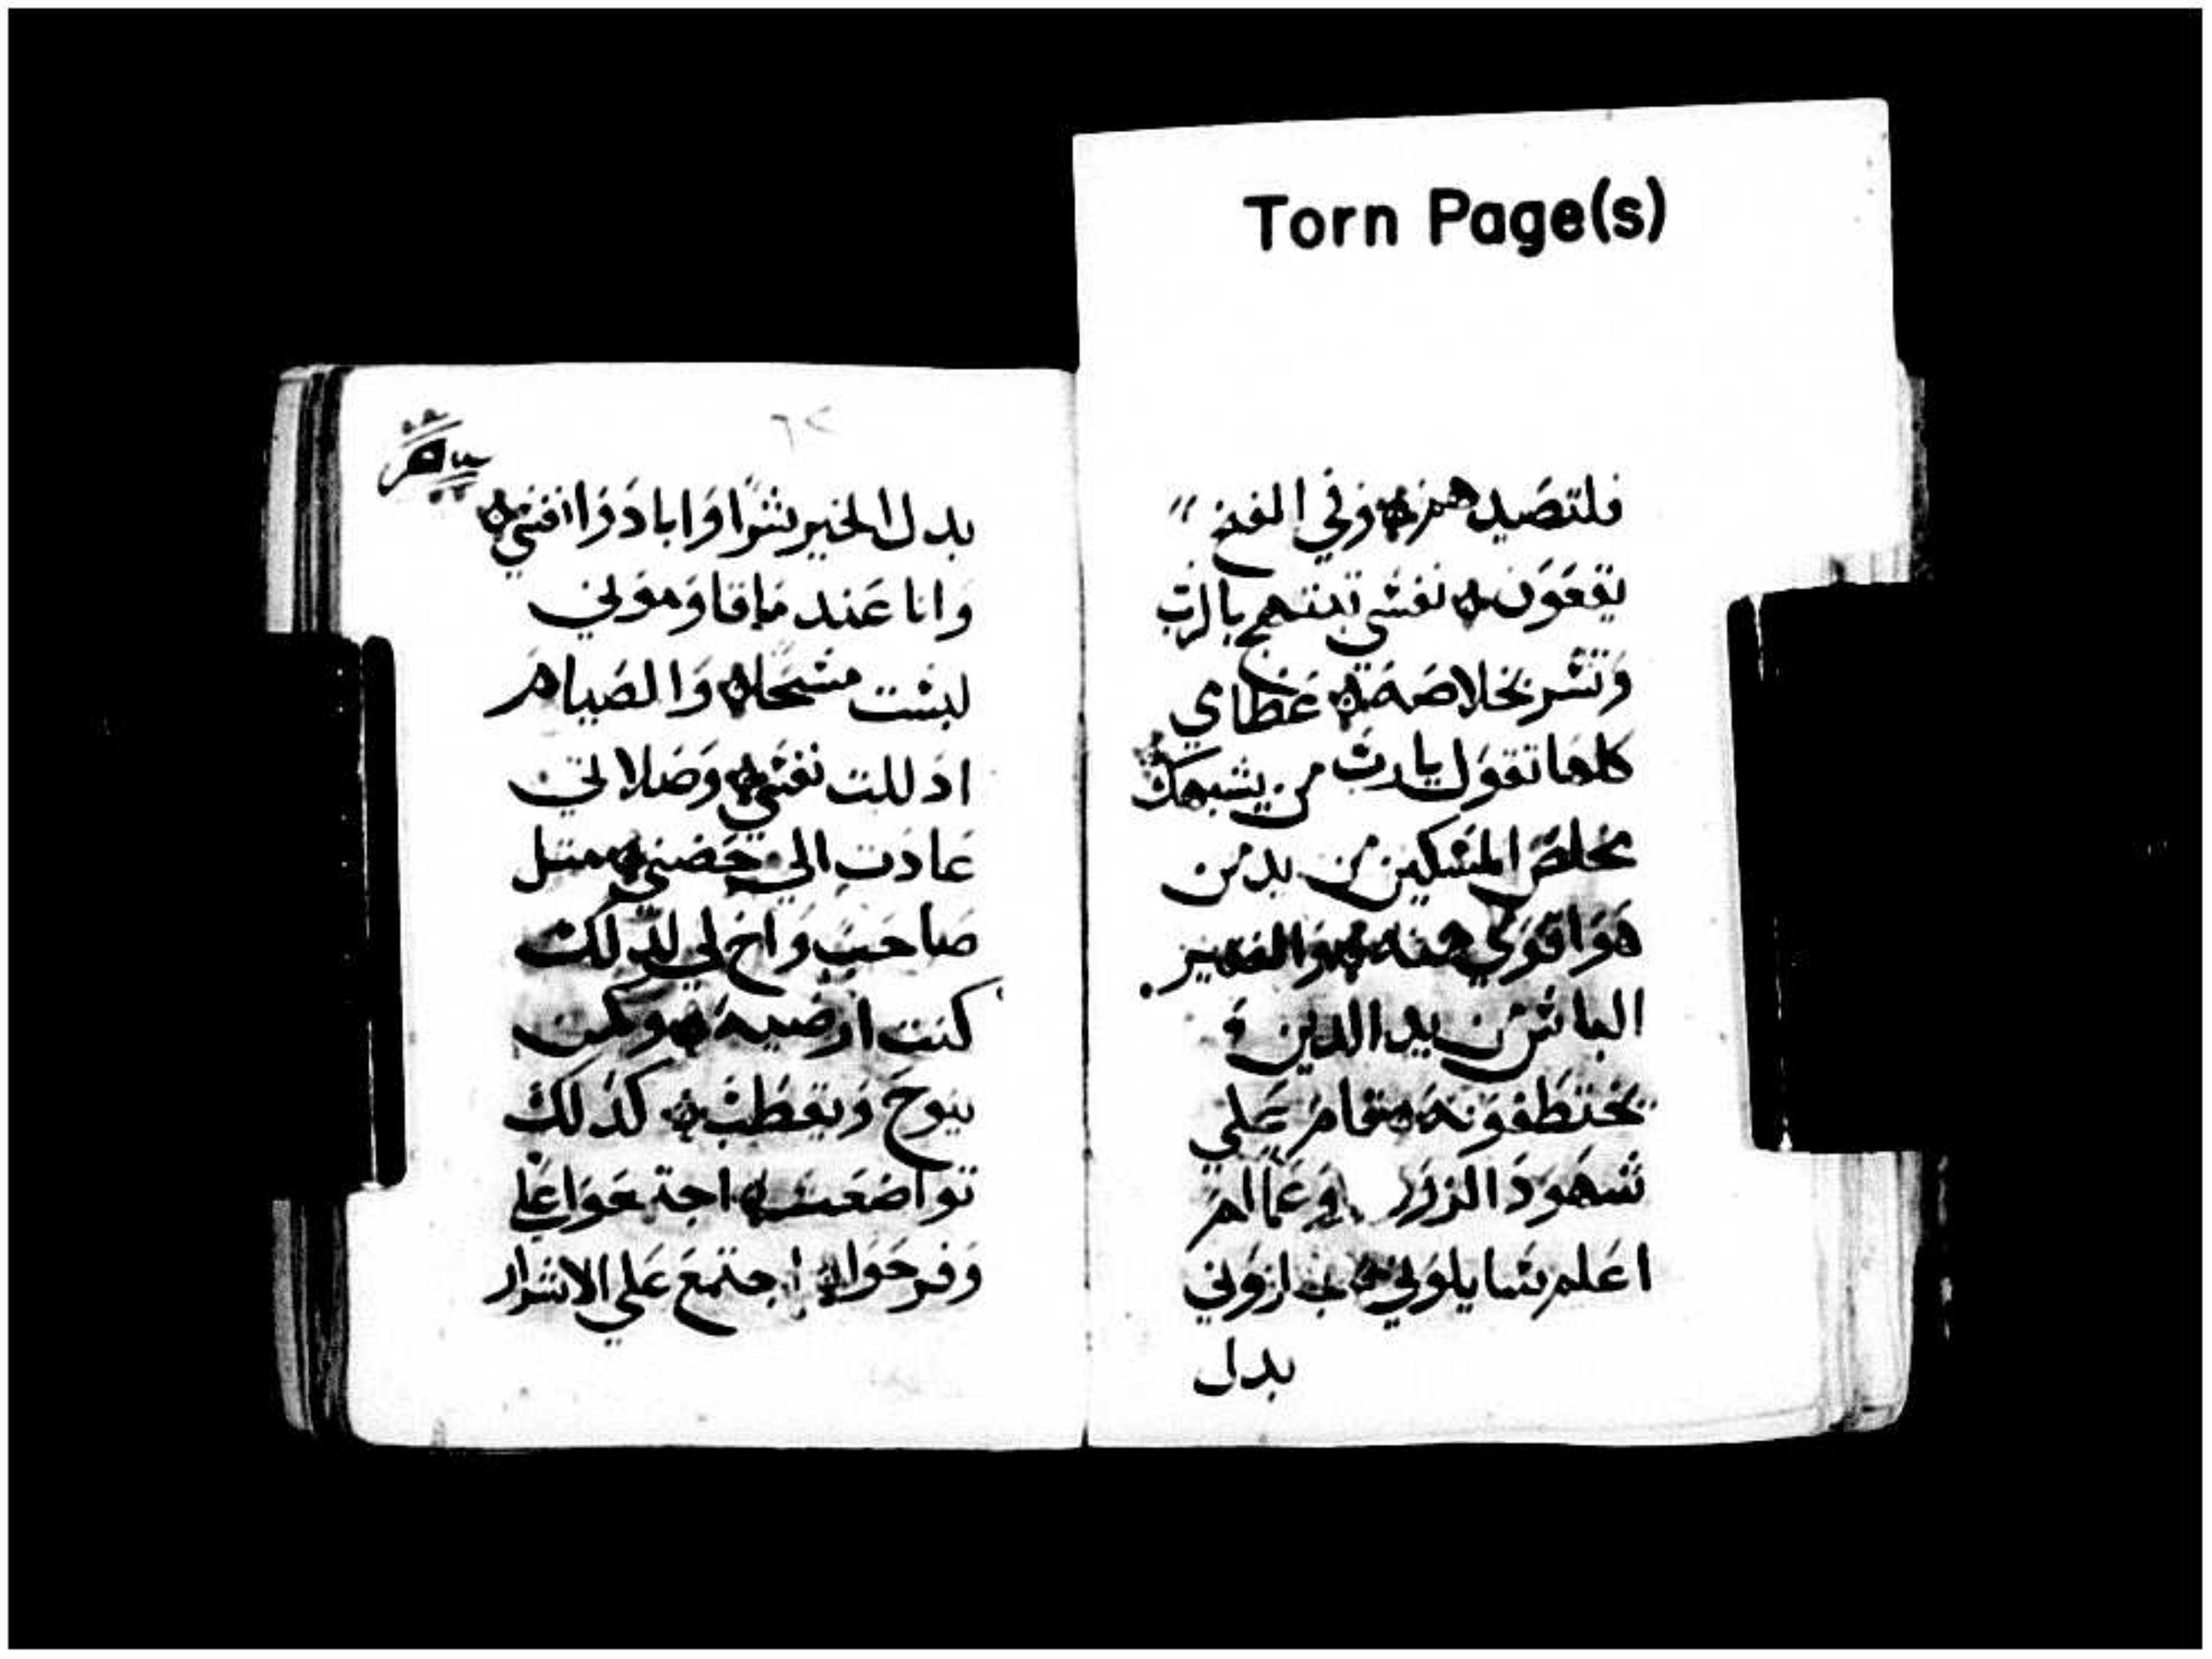 Torn Page(s)
فلتصيدهم ۞ وفي الفخ
يقعون ۞ نفسي تبتهج بالرب
وتسر بخلاصه ۞ عظامي
كلها تقول يارب من يشبهك
مخلص المسكين من يد من
هو اقوي منه ۞ والفقير
البائس من يد الدين
يختطفونه ۞ قام علي
شهود الزور وعما لم
اعلم سايلوني ۞ جازوني
بدل
بدل الخير شرا وابادوا نفسي ۞
وانا عند ما قاوموني
لبست مسحا ۞ وبالصيام
اذللت نفسي ۞ وصلاتي
عادت الي حضني ۞ مثل
صاحب واخ لي كذلك
كنت ارضيه ۞ وكمن
ينوح ويقطب ۞ كذلك
تواضعت ۞ اجتمعوا علي
وفرحوا ۞ اجتمع علي الاشرار